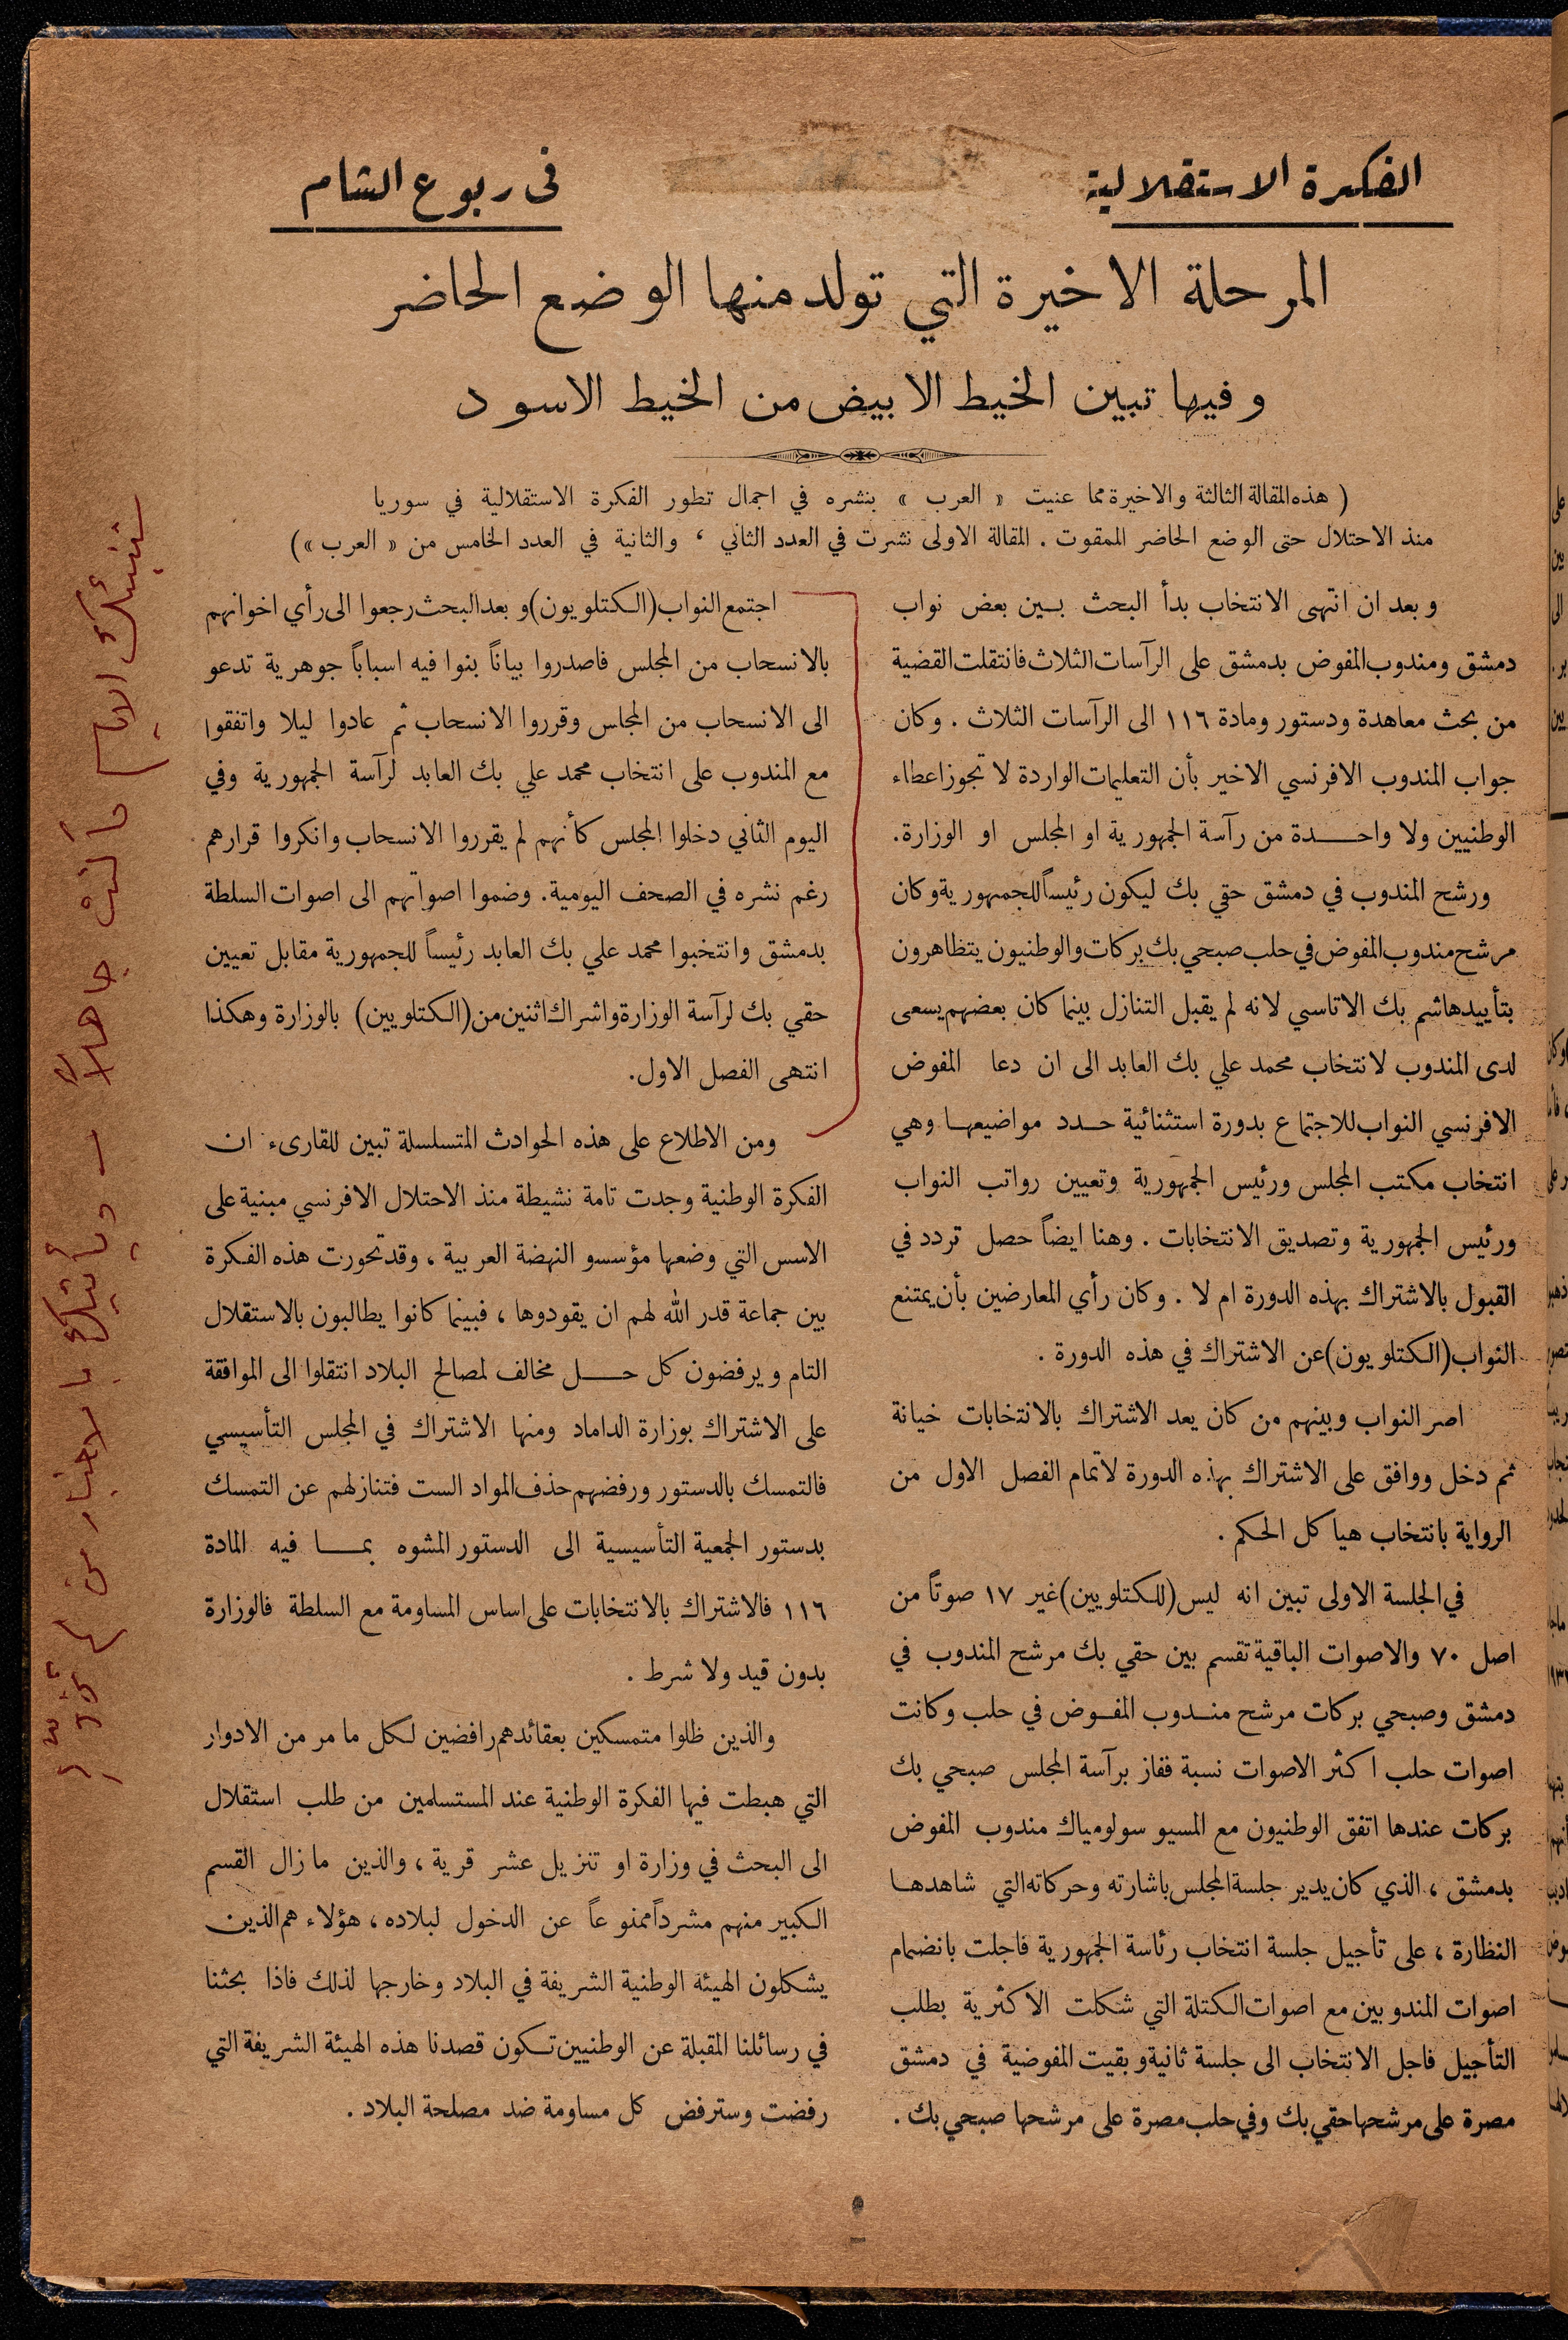 الفكرة الاستقلالية
فى ربوع الشام
المرحلة الاخيرة التي تولد منها الوضع الحاضر
وفيها تبين الخيط الابيض من الخيط الاسود
( هذه المقالة الثالثة والاخيرة مما عنيت « العرب » بنشره في اجمال تطور الفكرة الاستقلالية في سوريا
منذ الاحتلال حتى الوضع الحاضر الممقوت . المقالة الاولى نشرت في العدد الثاني ، والثانية في العدد الخامس من « العرب »)
وبعد ان انتهى الانتخاب بدأ البحث بين بعض نواب
دمشق ومندوب المفوض بدمشق على الرآسات الثلاث فانتقلت القضية
من بحث معاهدة ودستور ومادة ١١٦ الى الرآسات الثلاث . وكان
جواب المندوب الافرنسي الاخير بأن التعليمات الواردة لا تجوز اعطاء
الوطنيين ولا واحدة من رآسة الجمهورية او المجلس او الوزارة.
ورشح المندوب في دمشق حقي بك ليكون رئيساً للجمهورية وكان
مرشح مندوب المفوض في حلب صبحي بك بركات والوطنيون يتظاهرون
بتأييد هاشم بك الاتاسي لانه لم يقبل التنازل بينما كان بعضهم يسعى
لدى المندوب لانتخاب محمد علي بك العابد الى ان دعا المفوض
الافرنسي النواب للاجتماع بدورة استثنائية حدد مواضيعها وهي
انتخاب مكتب المجلس ورئيس الجمهورية وتعيين رواتب النواب
ورئيس الجمهورية وتصديق الانتخابات . وهنا ايضاً حصل تردد في
القبول بالاشتراك بهذه الدورة ام لا . وكان رأي المعارضين بأن يمتنع
النواب (الكتلويون) عن الاشتراك في هذه الدورة .
اصر النواب وبينهم من كان يعد الاشتراك بالانتخابات خيانة
ثم دخل ووافق على الاشتراك بهذه الدورة لاتمام الفصل الاول من
الرواية بانتخاب هياكل الحكم .
في الجلسة الاولى تبين انه ليس (للكتلويين) غير ١٧ صوتاً من
اصل ٧٠ والاصوات الباقية تقسم بين حقي بك مرشح المندوب في
دمشق وصبحي بركات مرشح مندوب المفوض في حلب وكانت
اصوات حلب اكثر الاصوات نسبة ففاز برآسة المجلس صبحي بك
بركات عندها اتفق الوطنيون مع المسيو سولومياك مندوب المفوض
بدمشق ، الذي كان يدير جلسة المجلس باشارته وحركاته التي شاهدها
النظارة ، على تأجيل جلسة انتخاب رئاسة الجمهورية فاجلت بانضمام
اصوات المندوبين مع اصوات الكتلة التي شكلت الاكثرية بطلب
التأجيل فاجل الانتخاب الى جلسة ثانية وبقيت المفوضية في دمشق
مصرة على مرشحها حقي بك وفي حلب مصرة على مرشحها صبحي بك .
اجتمع النواب (الكتلويون) وبعد البحث رجعوا الى رأي اخوانهم
بالانسحاب من المجلس فاصدروا بياناً بنوا فيه اسباباً جوهرية تدعو
الى الانسحاب من المجلس وقرروا الانسحاب ثم عادوا ليلا واتفقوا
مع المندوب على انتخاب محمد علي بك العابد لرآسة الجمهورية وفي
اليوم الثاني دخلوا المجلس كأنهم لم يقرروا الانسحاب وانكروا قرارهم
رغم نشره في الصحف اليومية . وضموا اصواتهم الى اصوات السلطة
بدمشق وانتخبوا محمد علي بك العابد رئيساً للجمهورية مقابل تعيين
حقي بك لرآسة الوزارة واشراك اثنين من (الكتلويين) بالوزارة وهكذا
انتهى الفصل الاول.
ومن الاطلاع على هذه الحوادث المتسلسلة تبين للقارىء ان
الفكرة الوطنية وجدت تامة نشيطة منذ الاحتلال الافرنسي مبنية على
الاسس التي وضعها مؤسسو النهضة العربية ، وقد تحورت هذه الفكرة
بين جماعة قدر الله لهم ان يقودوها ، فبينما كانوا يطالبون بالاستقلال
التام ويرفضون كل حل مخالف لمصالح البلاد انتقلوا الى الموافقة
على الاشتراك بوزارة الداماد ومنها الاشتراك في المجلس التأسيسي
فالتمسك بالدستور ورفضهم حذف المواد الست فتنازلهم عن التمسك
بدستور الجمعية التأسيسية الى الدستور المشوه بما فيه المادة
١١٦ فالاشتراك بالانتخابات على اساس المساومة مع السلطة فالوزارة
بدون قيد ولا شرط .
والذين ظلوا متمسكين بعقائدهم رافضين لكل ما مر من الادوار
التي هبطت فيها الفكرة الوطنية عند المستسلمين من طلب استقلال
الى البحث في وزارة او تنزيل عشر قرية ، والذين ما زال القسم
الكبير منهم مشرداً ممنوعاً عن الدخول لبلاده ، هؤلاء هم الذين
يشكلون الهيئة الوطنية الشريفة في البلاد وخارجها لذلك فاذا بحثنا
في رسائلنا المقبلة عن الوطنيين تكون قصدنا هذه الهيئة الشريفة التي
رفضت وسترفض كل مساومة ضد مصلحة البلاد .
ستنبئك الايام ما كنت جاهلاً – ويأتيك بالاخبار من لم تزوّد